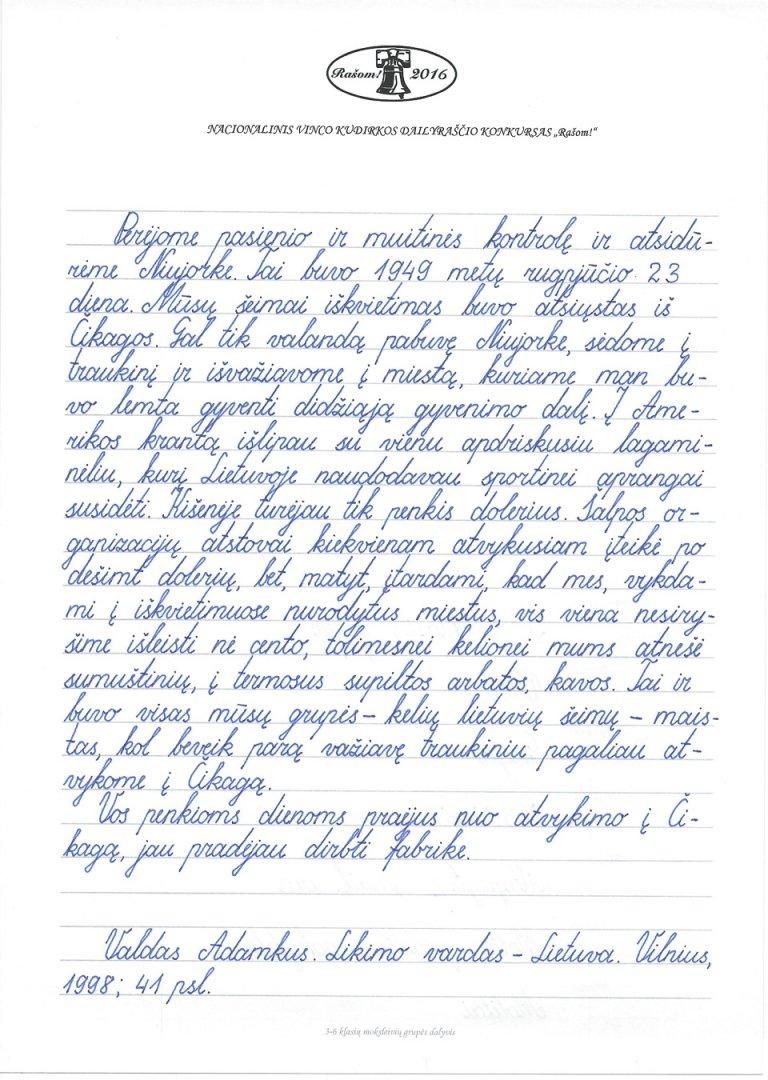 Rašom! 2016
NACIONALINIS VINCO KUDIRKOS DAILYRAŠČIO KONKURSAS „Rašom!“
Perėjome pasienio ir muitinės kontrolę ir atsidū-
rėme Niujorke. Tai buvo 1949 metų rugpjūčio 23
diena. Mūsų šeimai iškvietimas buvo atsiųstas iš
Čikagos. Gal tik valandą pabuvę Niujorke, sėdome į
traukinį ir išvažiavome į miestą, kuriame man bu-
vo lemta gyventi didžiąją gyvenimo dalį. Į Ame-
rikos krantą išlipau su vienu apdriskusiu lagami-
nėliu, kurį Lietuvoje naudodavau sportinei aprangai
susidėti. Kišenėje turėjau tik penkis dolerius. Šalpos or-
ganizacijų atstovai kiekvienam atvykusiam įteikė po
dešimt dolerių, bet, matyt, įtardami, kad mes, vykda-
mi į iškvietimuose nurodytus miestus, vis viena nesiry-
šime išleisti nė cento, tolimesnei kelionei mums atnešė
sumuštinių, į termosus supiltos arbatos, kavos. Tai ir
buvo visas mūsų grupės – kelių lietuvių šeimų – mais-
tas, kol beveik parą važiavę traukiniu pagaliau at-
vykome į Čikagą.
Vos penkioms dienoms praėjus nuo atvykimo į Či-
kagą, jau pradėjau dirbti fabrike.
Valdas Adamkus. Likimo vardas – Lietuva. Vilnius,
1998; 41 psl.
5-6 klasių moksleivių grupės dalyvis